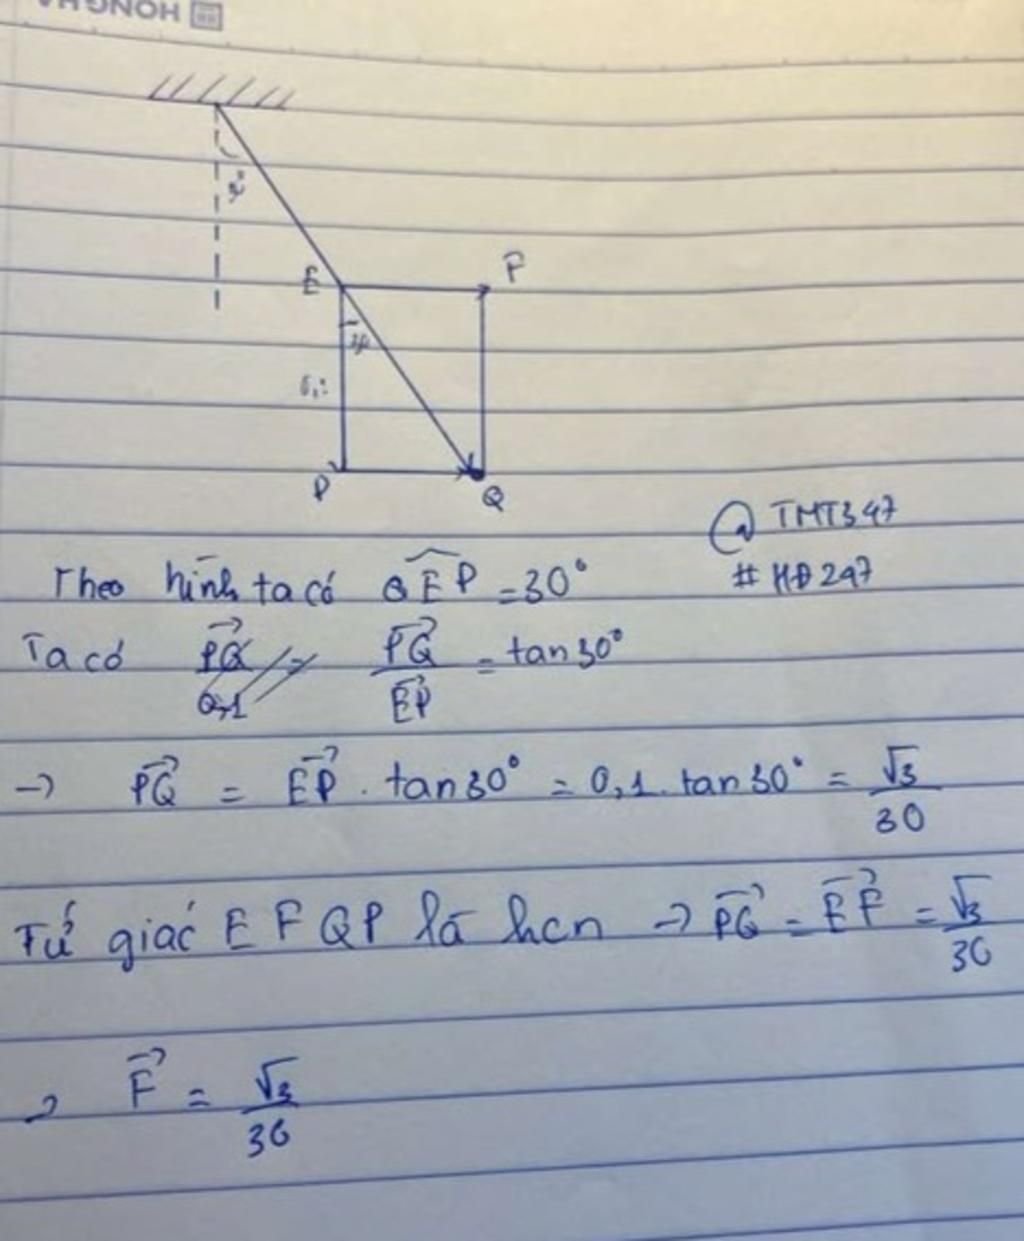 HONGHA
30°
E
F
30
0,1
P
Q
@ TMT347
# HĐ247
Theo hình ta có QEP = 30°
Ta có PQ / 0,1 = PQ / EP = tan30°
→ PQ = EP . tan30° = 0,1 . tan30° = √3 / 30
Tứ giác EFQP là hcn → PQ = EF = √3 / 30
→ F = √3 / 30